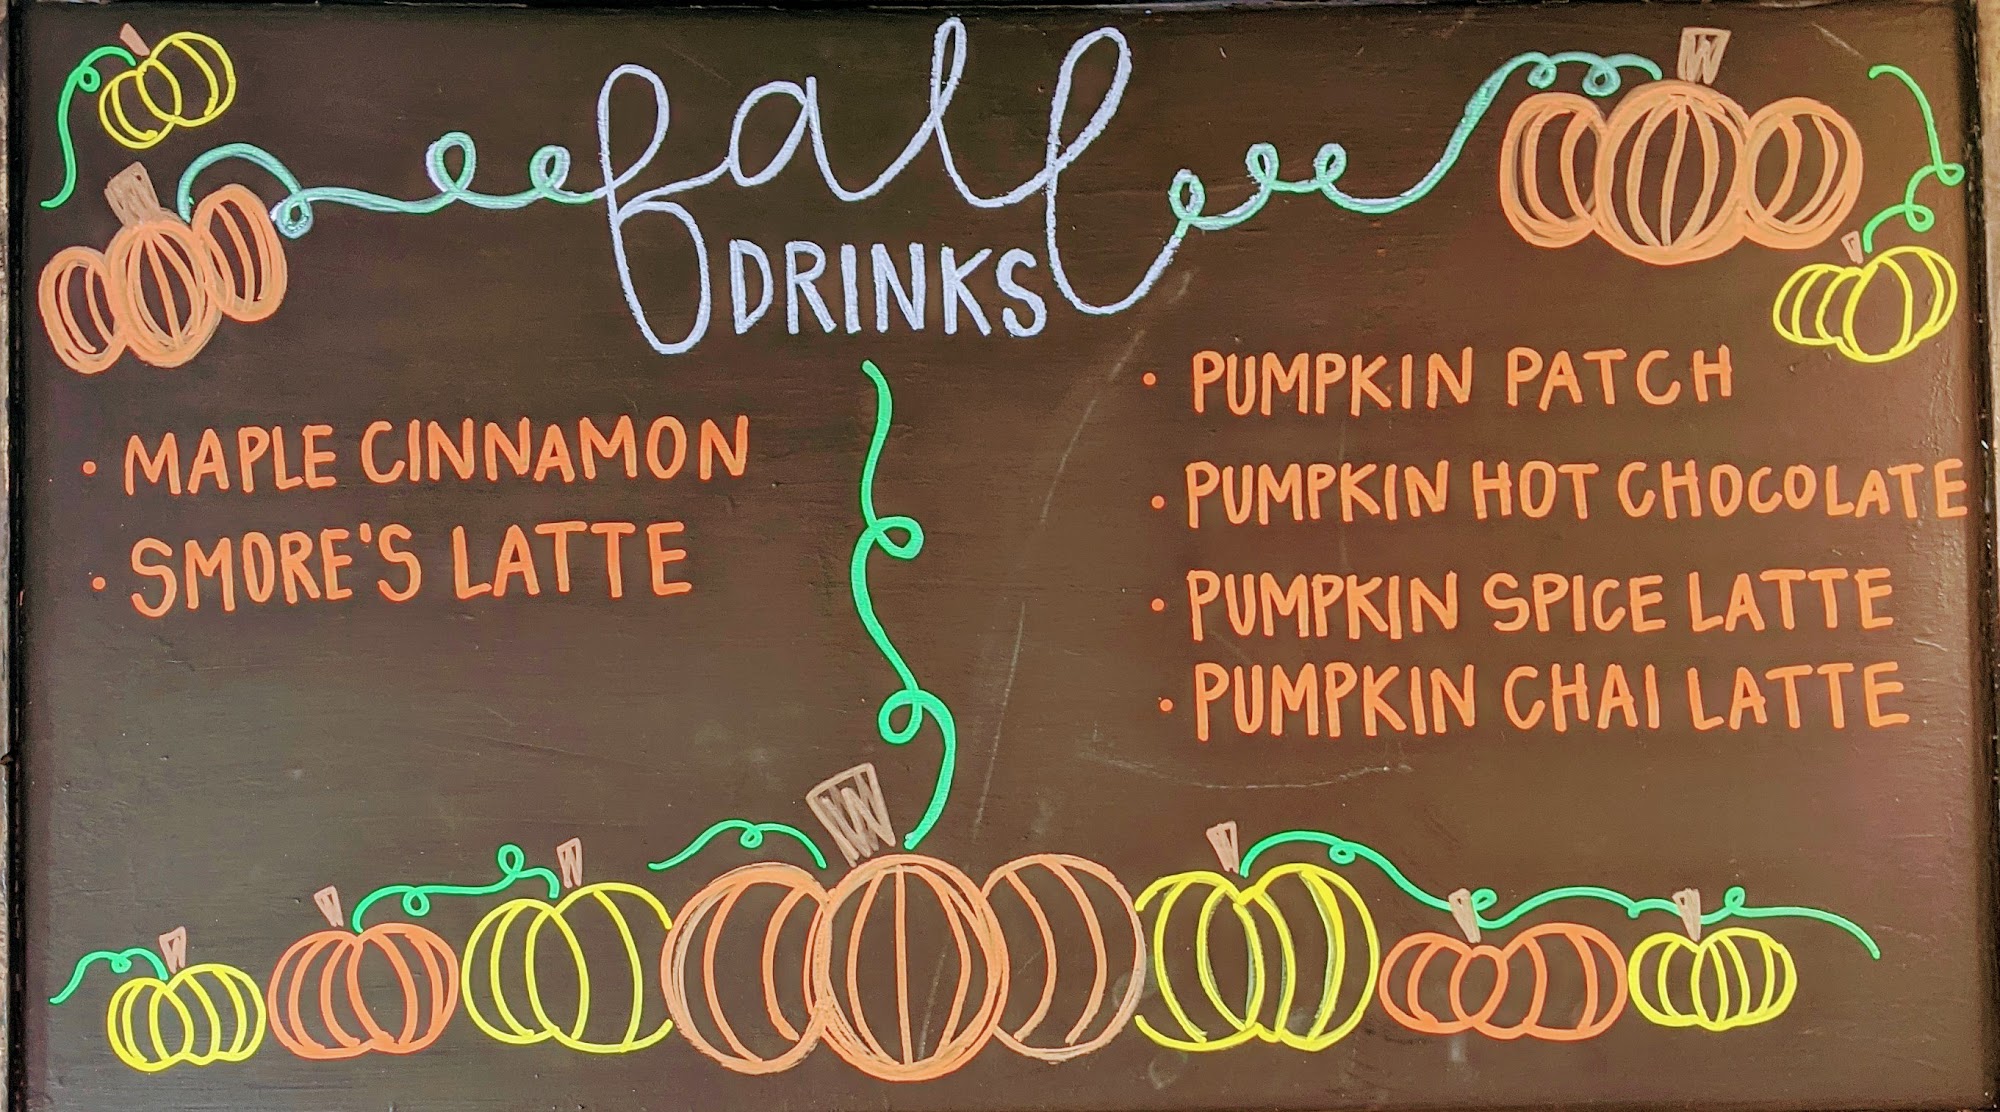 fall
DRINKS
• MAPLE CINNAMON
• SMORE'S LATTE
• PUMPKIN PATCH
• PUMPKIN HOT CHOCOLATE
• PUMPKIN SPICE LATTE
• PUMPKIN CHAI LATTE